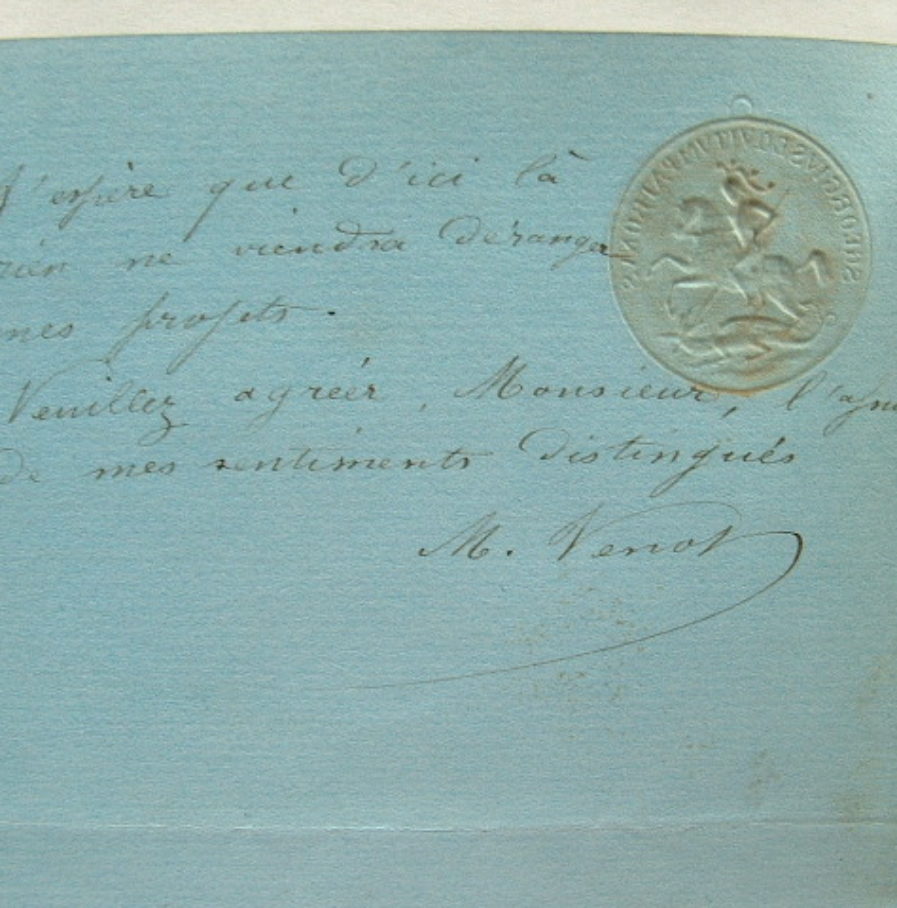 J'espère que d'ici là
rien ne viendra déranger
mes projets.
Veuillez agréer, Monsieur,
de mes sentiments distingués
M. Venot